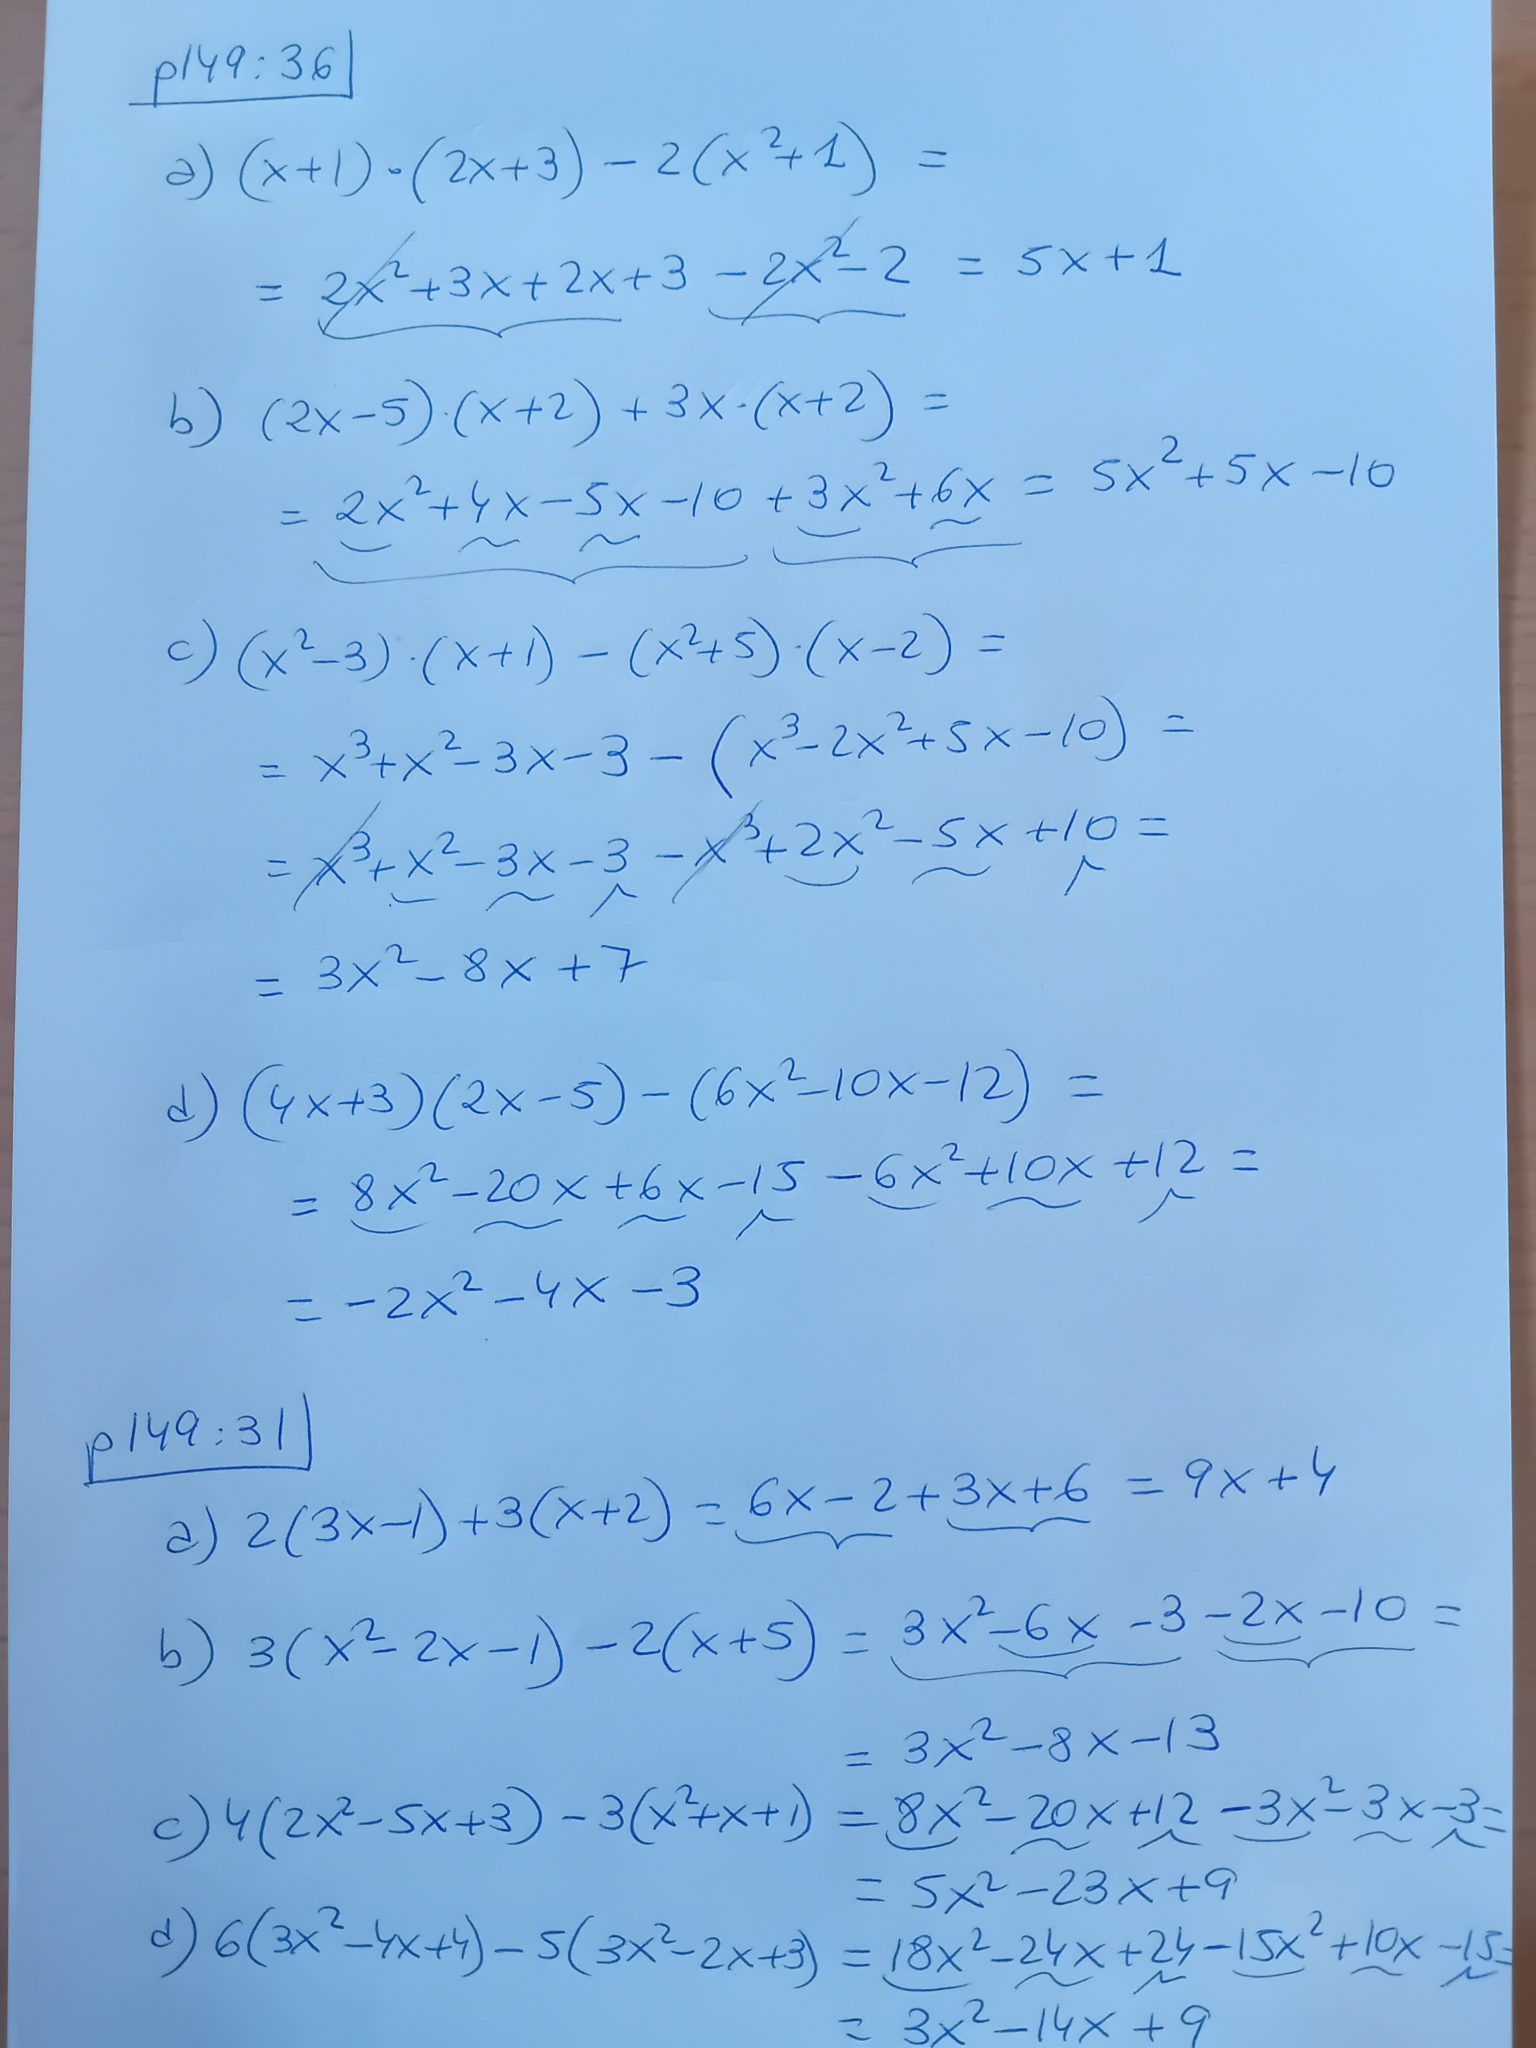 p149:36
a) (x+1)·(2x+3) – 2(x²+1) =
= 2x²+3x+2x+3 –2x²–2 = 5x+1
b) (2x–5)·(x+2) + 3x·(x+2) =
= 2x²+4x–5x–10 +3x²+6x = 5x²+5x–10
c) (x²–3)·(x+1) – (x²+5)·(x–2) =
= x³+x²–3x–3 – (x³–2x²+5x–10) =
= x³+x²–3x–3 –x³+2x²–5x+10 =
= 3x²–8x+7
d) (4x+3)(2x–5) – (6x²–10x–12) =
= 8x²–20x+6x–15 –6x²+10x+12 =
= –2x²–4x–3
p149:31
a) 2(3x–1)+3(x+2) = 6x–2+3x+6 = 9x+4
b) 3(x²–2x–1) –2(x+5) = 3x²–6x–3–2x–10 =
= 3x²–8x–13
c) 4(2x²–5x+3) –3(x²+x+1) = 8x²–20x+12 –3x²–3x–3=
= 5x²–23x+9
d) 6(3x²–4x+4)–5(3x²–2x+3) = 18x²–24x+24–15x²+10x–15=
= 3x²–14x+9